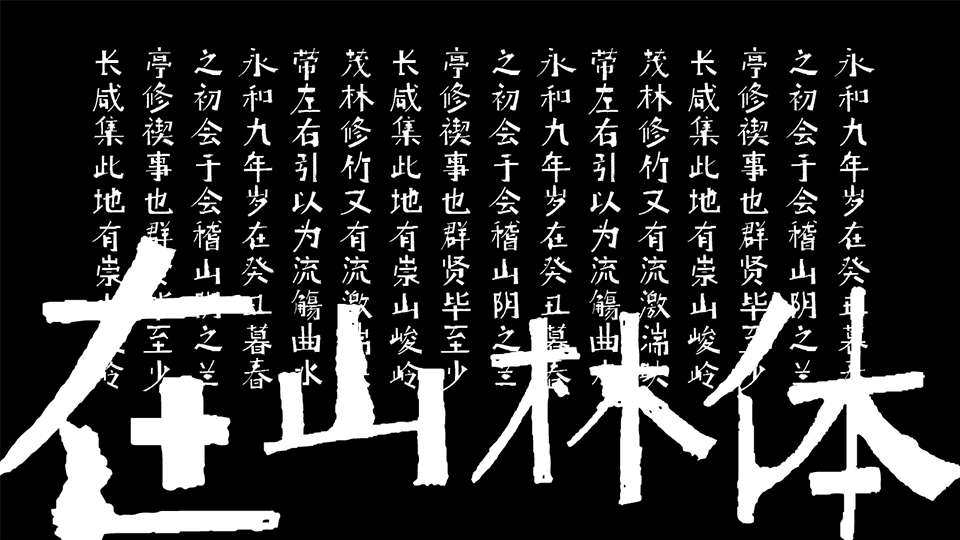 永和九年岁在癸丑暮春
之初会于会稽山阴之兰
亭修禊事也群贤毕至少
长咸集此地有崇山峻岭
茂林修竹又有流激湍映
带左右引以为流觞曲水
永和九年岁在癸丑暮春
之初会于会稽山阴之兰
亭修禊事也群贤毕至少
长咸集此地有崇山峻岭
茂林修竹又有流激湍映
带左右引以为流觞曲水
永和九年岁在癸丑暮春
之初会于会稽山阴之兰
亭修禊事也群贤毕至少
长咸集此地有崇山峻岭
在山林体